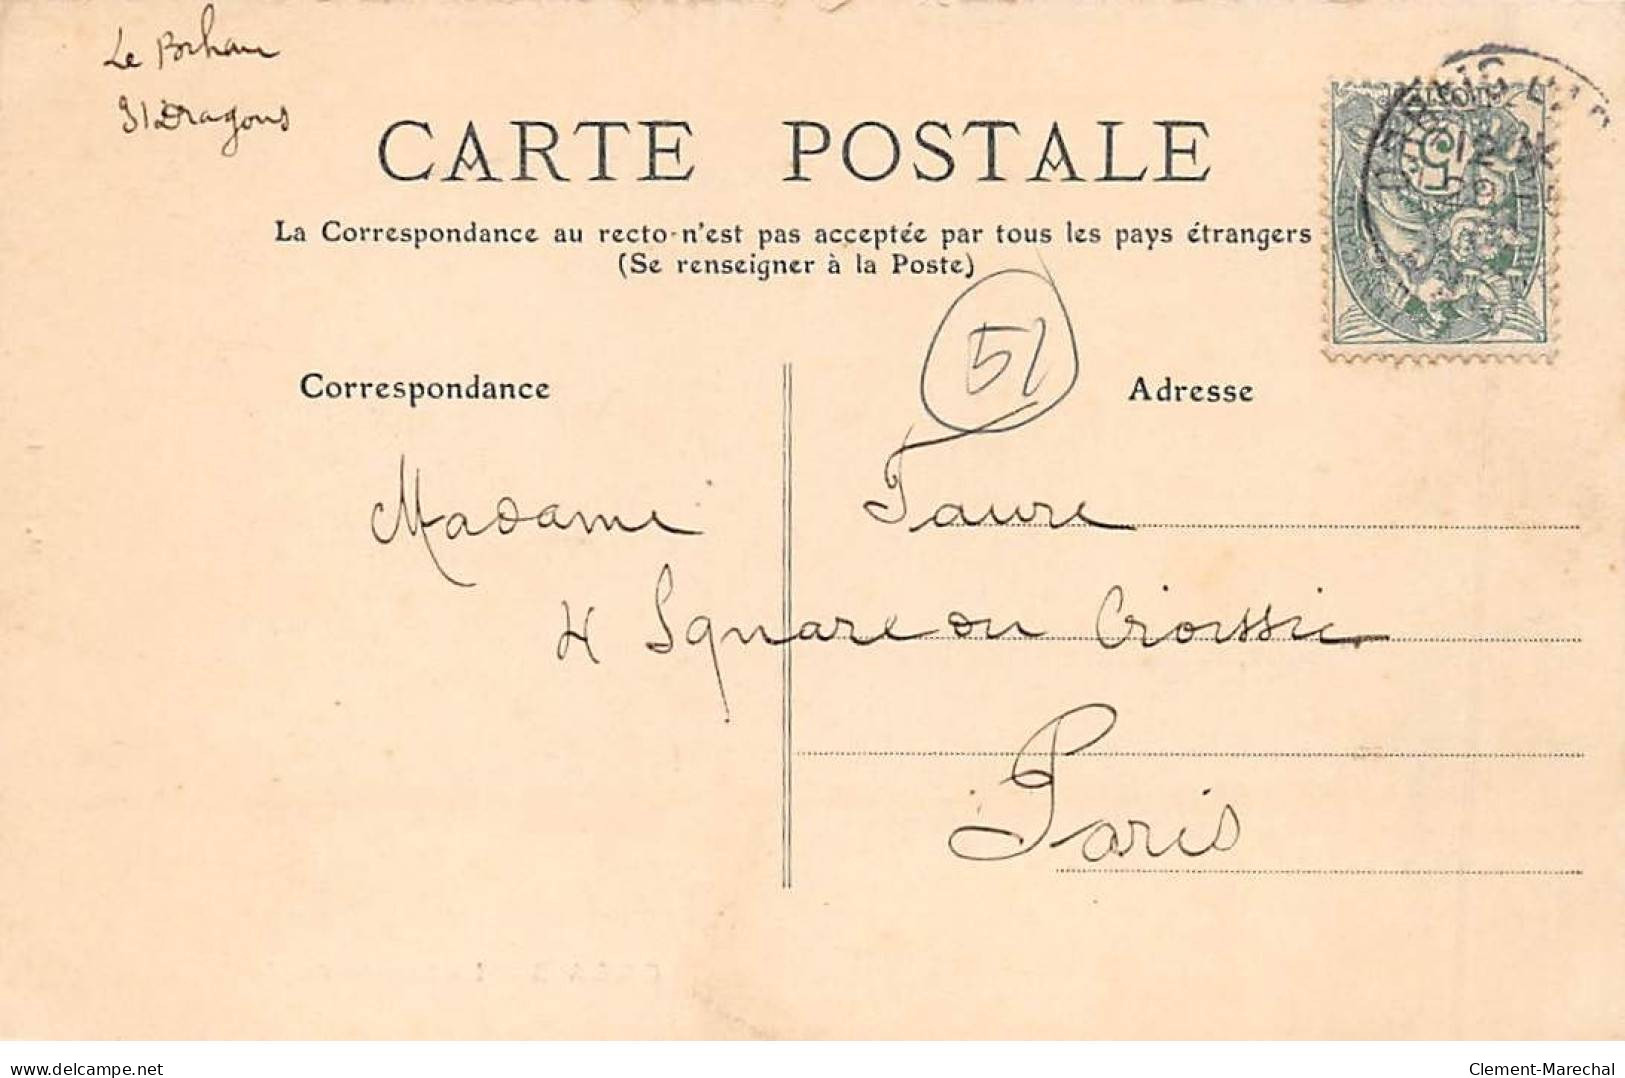 Le
31 Dragons
CARTE POSTALE
La Correspondance au recto n'est pas acceptée par tous les pays étrangers
(Se renseigner à la Poste)
51
Correspondance
Adresse
Madame Faure
4 Square du Croissic
Paris
delcampe.net
Clement-Marechal